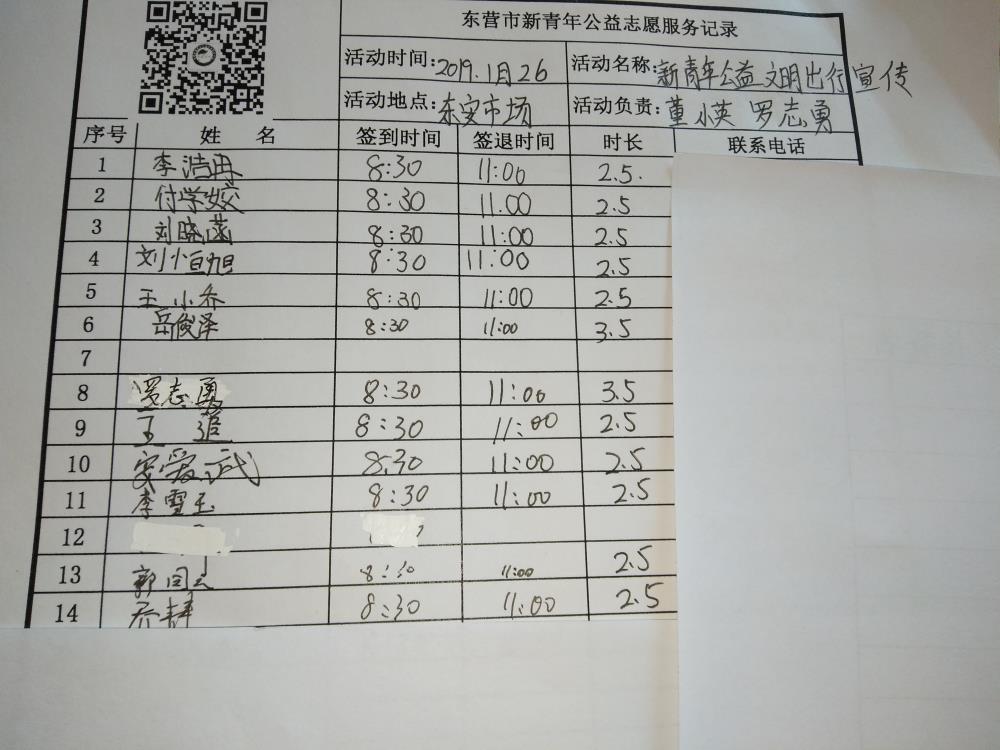 东营市新青年公益志愿服务记录
活动时间:2019.1月26 活动名称:新青年公益文明出行宣传
活动地点:东安市场 活动负责:董小英 罗志勇
序号 姓 名 签到时间 签退时间 时长 联系电话
1 李浩冉 8:30 11:00 2.5.
2 付学姣 8:30 11.00 2.5
3 刘晓菡 8:30 11:00 2.5
4 刘恒旭 8:30 11:00 2.5
5 王小乔 8:30 11:00 2.5
6 岳俊泽 8:30 11:00 3.5
7
8 罗志勇 8:30 11:00 3.5
9 王 追 8:30 11:00 2.5
10 安爱武 8.30 11:00 2.5
11 李雪玉 8:30 11:00 2.5
12
13 郭 8:30 11:00 2.5
14 乔 8:30 11:00 2.5